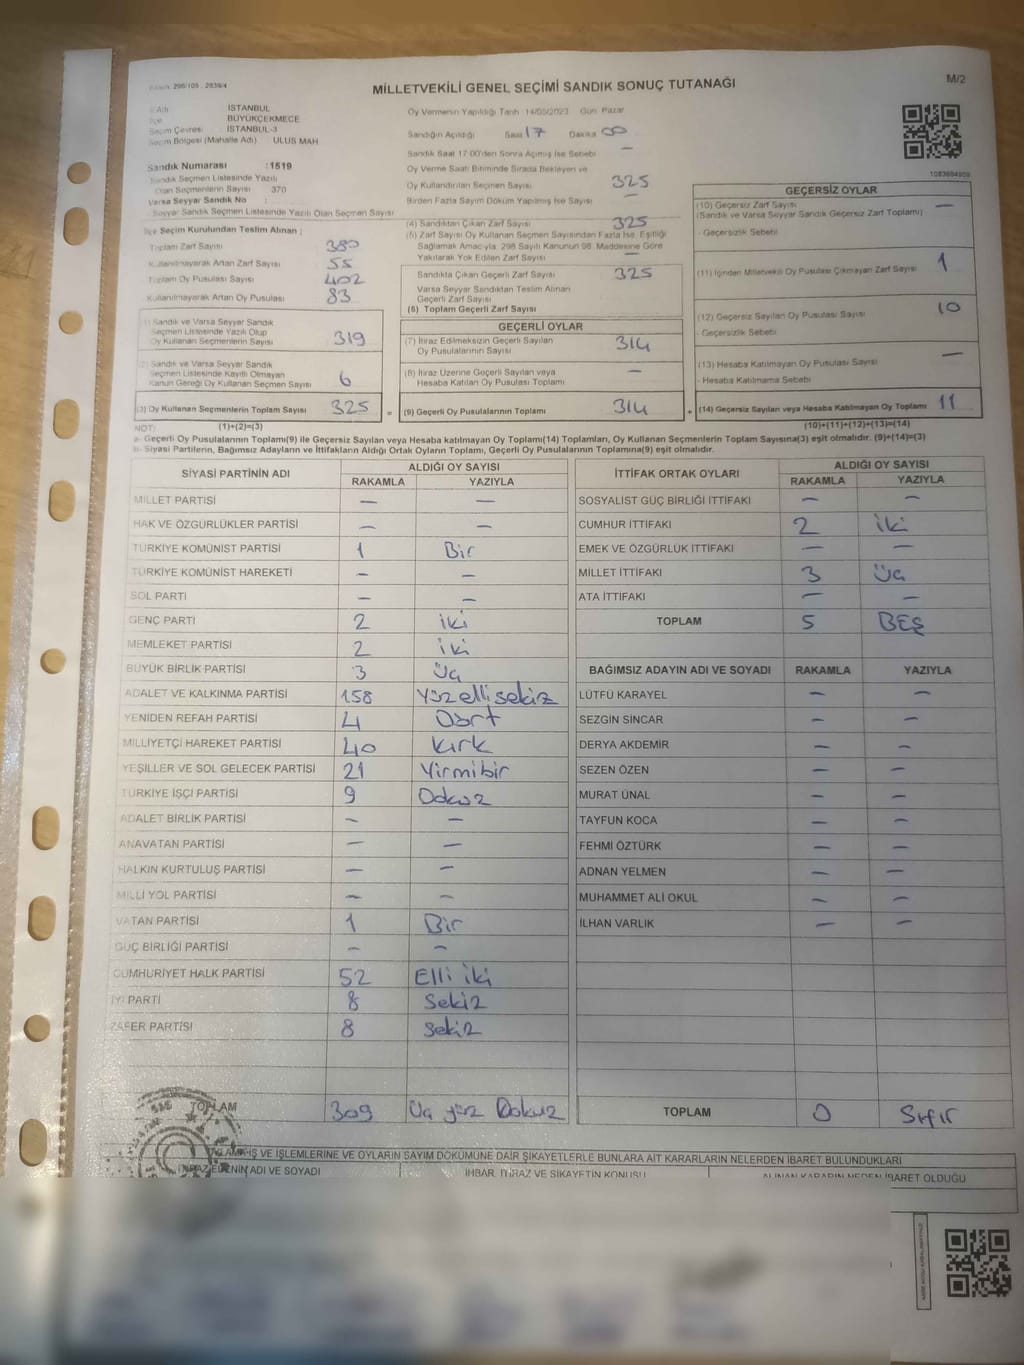 MİLLETVEKİLİ GENEL SEÇİMİ SANDIK SONUÇ TUTANAĞI
M/2
İSTANBUL
BÜYÜKÇEKMECE
Seçim Çevresi : İSTANBUL-3
Seçim Bölgesi (Mahalle Adı) ULUS MAH
Sandık Numarası : 1519
Sandık Seçmen Listesinde Yazılı
Olan Seçmenlerin Sayısı 370
Varsa Seyyar Sandık No
Seyyar Sandık Seçmen Listesinde Yazılı Olan Seçmen Sayısı
İlçe Seçim Kurulundan Teslim Alınan ;
Toplam Zarf Sayısı 380
Kullanılmayarak Artan Zarf Sayısı 55
Toplam Oy Pusulası Sayısı 402
Kullanılmayarak Artan Oy Pusulası 83
(1) Sandık ve Varsa Seyyar Sandık
Seçmen Listesinde Yazılı Olup
Oy Kullanan Seçmenlerin Sayısı 319
(2) Sandık ve Varsa Seyyar Sandık
Seçmen Listesinde Kayıtlı Olmayan
Kanun Gereği Oy Kullanan Seçmen Sayısı 6
(3) Oy Kullanan Seçmenlerin Toplam Sayısı 325 =
Oy Vermenin Yapıldığı Tarih 14/05/2023 Gün: Pazar
Sandığın Açıldığı Saat 17 Dakika 00
Sandık Saat 17:00'den Sonra Açılmış İse Sebebi —
Oy Verme Saati Bitiminde Sırada Bekleyen ve
Oy Kullandırılan Seçmen Sayısı 325
Birden Fazla Sayım Döküm Yapılmış İse Sayısı —
(4) Sandıktan Çıkan Zarf Sayısı 325
(5) Zarf Sayısı Oy Kullanan Seçmen Sayısından Fazla İse, Eşitliği
Sağlamak Amacıyla, 298 Sayılı Kanunun 98. Maddesine Göre
Yakılarak Yok Edilen Zarf Sayısı —
Sandıkta Çıkan Geçerli Zarf Sayısı 325
Varsa Seyyar Sandıktan Teslim Alınan
Geçerli Zarf Sayısı
(6) Toplam Geçerli Zarf Sayısı
GEÇERLİ OYLAR
(7) İtiraz Edilmeksizin Geçerli Sayılan
Oy Pusulalarının Sayısı 314
(8) İtiraz Üzerine Geçerli Sayılan veya
Hesaba Katılan Oy Pusulası Toplamı —
(9) Geçerli Oy Pusulalarının Toplamı 314 +
1083684809
GEÇERSİZ OYLAR
(10) Geçersiz Zarf Sayısı —
(Sandık ve Varsa Seyyar Sandık Geçersiz Zarf Toplamı)
- Geçersizlik Sebebi
(11) İçinden Milletvekili Oy Pusulası Çıkmayan Zarf Sayısı 1
(12) Geçersiz Sayılan Oy Pusulası Sayısı 10
- Geçersizlik Sebebi
(13) Hesaba Katılmayan Oy Pusulası Sayısı —
- Hesaba Katılmama Sebebi
(14) Geçersiz Sayılan veya Hesaba Katılmayan Oy Toplamı 11
NOT: (1)+(2)=(3) (10)+(11)+(12)+(13)=(14)
a- Geçerli Oy Pusulalarının Toplamı(9) ile Geçersiz Sayılan veya Hesaba katılmayan Oy Toplamı(14) Toplamları, Oy Kullanan Seçmenlerin Toplam Sayısına(3) eşit olmalıdır. (9)+(14)=(3)
b- Siyasi Partilerin, Bağımsız Adayların ve İttifakların Aldığı Ortak Oyların Toplamı, Geçerli Oy Pusulalarının Toplamına(9) eşit olmalıdır.
SİYASİ PARTİNİN ADI ALDIĞI OY SAYISI
RAKAMLA YAZIYLA
MİLLET PARTİSİ — —
HAK VE ÖZGÜRLÜKLER PARTİSİ — —
TÜRKİYE KOMÜNİST PARTİSİ 1 Bir
TÜRKİYE KOMÜNİST HAREKETİ — —
SOL PARTİ — —
GENÇ PARTİ 2 iki
MEMLEKET PARTİSİ 2 iki
BÜYÜK BİRLİK PARTİSİ 3 Üç
ADALET VE KALKINMA PARTİSİ 158 Yüzellisekiz
YENİDEN REFAH PARTİSİ 4 Dört
MİLLİYETÇİ HAREKET PARTİSİ 40 kırk
YEŞİLLER VE SOL GELECEK PARTİSİ 21 Yirmibir
TÜRKİYE İŞÇİ PARTİSİ 9 Dokuz
ADALET BİRLİK PARTİSİ — —
ANAVATAN PARTİSİ — —
HALKIN KURTULUŞ PARTİSİ — —
MİLLİ YOL PARTİSİ — —
VATAN PARTİSİ 1 Bir
GÜÇ BİRLİĞİ PARTİSİ — —
CUMHURİYET HALK PARTİSİ 52 Elli iki
İYİ PARTİ 8 Sekiz
ZAFER PARTİSİ 8 Sekiz
TOPLAM 309 Üç yüz Dokuz
İTTİFAK ORTAK OYLARI ALDIĞI OY SAYISI
RAKAMLA YAZIYLA
SOSYALİST GÜÇ BİRLİĞİ İTTİFAKI — —
CUMHUR İTTİFAKI 2 iki
EMEK VE ÖZGÜRLÜK İTTİFAKI — —
MİLLET İTTİFAKI 3 Üç
ATA İTTİFAKI — —
TOPLAM 5 BEŞ
BAĞIMSIZ ADAYIN ADI VE SOYADI RAKAMLA YAZIYLA
LÜTFÜ KARAYEL — —
SEZGİN SİNCAR — —
DERYA AKDEMİR — —
SEZEN ÖZEN — —
MURAT ÜNAL — —
TAYFUN KOCA — —
FEHMİ ÖZTÜRK — —
ADNAN YELMEN — —
MUHAMMET ALİ OKUL — —
İLHAN VARLIK — —
TOPLAM 0 Sıfır
İŞ VE İŞLEMLERİNE VE OYLARIN SAYIM DÖKÜMÜNE DAİR ŞİKAYETLERLE BUNLARA AİT KARARLARIN NELERDEN İBARET BULUNDUKLARI
ADI VE SOYADI İHBAR, İTİRAZ VE ŞİKAYETİN KONUSU ALINAN KARARIN NEDEN İBARET OLDUĞU